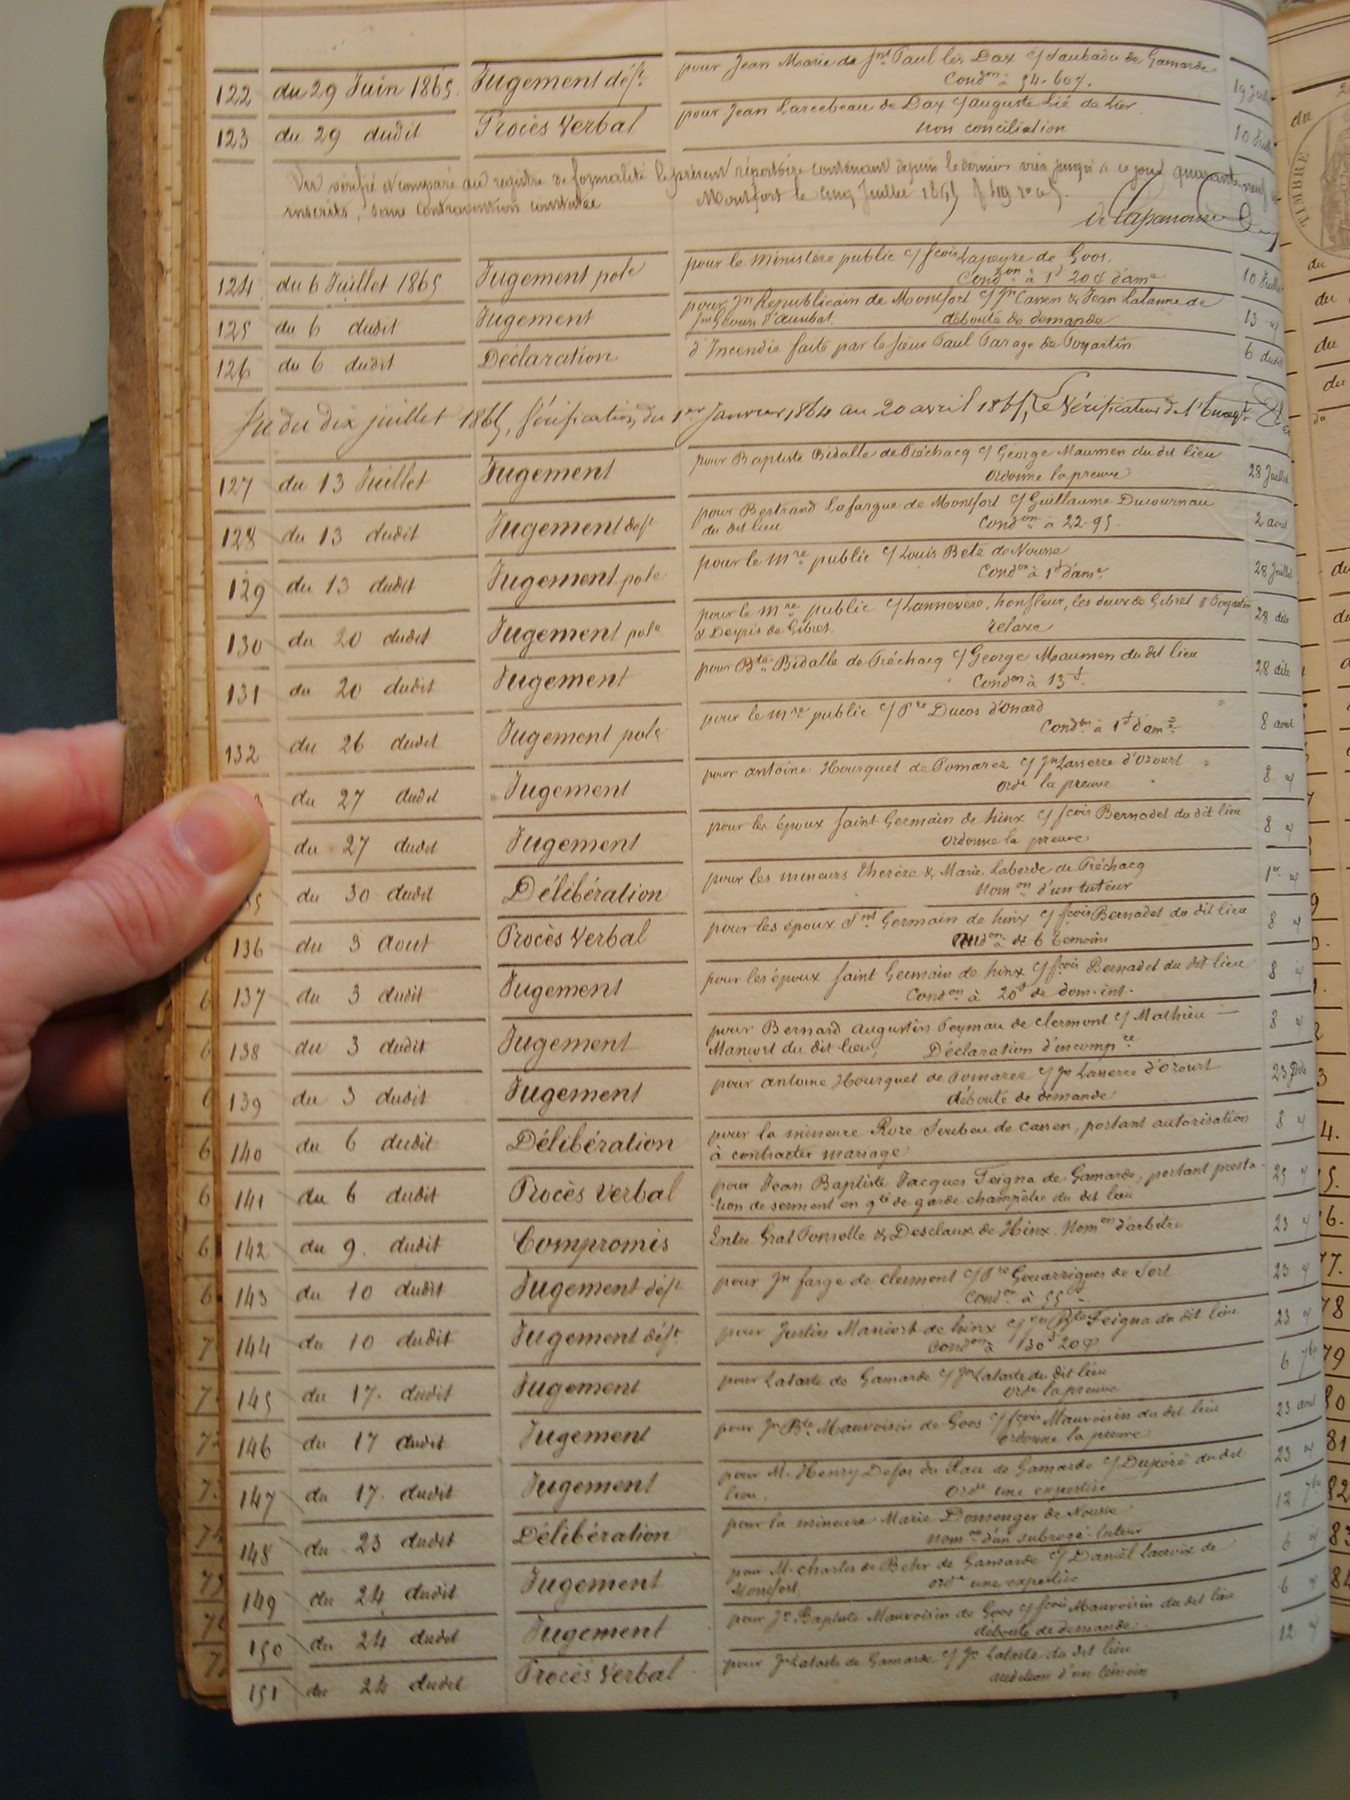 122 du 29 Juin 1865. Jugement déft pour Jean Marie de Jnt Paul les Dax c/ Saubadu de Gamarde
Condon à 54.60 f. 19 Juillet
123 du 29 dudit Procès Verbal pour Jean Larrebeau de Dax c/ auguste Lié de Lier
non conciliation 10 Juillet
Vu vérifié et comparé au registre de formalité le présent répertoire contenant depuis le dernier visa jusqu'à ce jour quarante neuf
inscrits, sans contravention constatée Montfort le cinq Juillet 1865
de Lapanouse
124 du 6 Juillet 1865 Jugement pole pour le ministère public c/ fcois Lapeyre de Goos.
Condon à 1f 20c d'ame 10 Juillet
125 du 6 dudit Jugement pour Jn Republicain de Montfort c/ Jn Cassen & Jean Lalanne de
d'auribat. débouté de demande 13 "
126 du 6 dudit Déclaration d'Incendie faite par le sieur Paul Parage de Poyartin 6 dudit
Vu du dix juillet 1865, Vérification du 1er Janvier 1864 au 20 avril 1865, Le Vérificateur de l'Enregt
127 du 13 Juillet Jugement pour Baptiste Bidalle de Préchacq c/ George Maumen du dit lieu
ordonne la preuve 28 Juillet
128 du 13 dudit Jugement deft pour Bertrand Lafargue de Montfort c/ Guillaume Ducournau
du dit lieu Condon à 22-95. 2 aout
129 du 13 dudit Jugement pole pour le mre public c/ Louis Bets de Nousse
Condon à 1f d'ame 28 Juillet
130 du 20 dudit Jugement pole pour le mre public c/ Lannevère, honfleur, les deux de Gibret
& Deyris de Gibret relaxe 28 dito
131 du 20 dudit Jugement pour Bte Bidalle de Préchacq c/ George Maumen du dit lieu
Condon à 13f. 28 dito
132 du 26 dudit Jugement pole pour le mre public c/ Pre Ducos d'Onard
Condon à 1f d'ame 8 aout
3 du 27 dudit Jugement pour antoine Hourquet de Pomarez c/ Jn Lasserre d'Ozourt
orde la preuve 8 "
du 27 dudit Jugement pour les époux Saint Germain de hinx c/ fcois Bernadet du dit lieu
ordonne la preuve 8 "
35 du 30 dudit Délibération pour les mineurs Thérèse & Marie Laborde de Préchacq
Nomon d'un tuteur 1er "
136 du 3 Aout Procès Verbal pour les époux Snt Germain de hinx c/ fcois Bernadet du dit lieu
audon de 6 témoins 8 "
137 du 3 dudit Jugement pour les époux Saint Germain de hinx c/ fcois Bernadet du dit lieu
Condon à 20f de dom. int. 8 "
138 du 3 dudit Jugement pour Bernard Augustin Peymau de Clermont c/ Mathieu
Maniort du dit lieu, Déclaration d'incompce 8 "
139 du 3 dudit Jugement pour antoine Hourquet de Pomarez c/ Jn Lasserre d'Ozourt
débouté de demande 23
140 du 6 dudit Délibération pour la mineure Roze Soubeu de Cassen, portant autorisation
à contracter mariage 8 "
141 du 6 dudit Procès Verbal pour Jean Baptiste Jacques Feigna de Gamarde, portant presta-
tion de serment en qté de garde champêtre du dit lieu 25 "
142 du 9. dudit Compromis Entre Grat Fontolle & Desclaux de Hinx. Nomon d'arbitre 23 "
143 du 10 dudit Jugement déft pour Jn farge de Clermont c/ Pre Gouarrigues de Sort
Condon à 55f 23 "
144 du 10 dudit Jugement déft pour Justin Maniort de hinx c/ Jn Bte Feigna du dit lieu
Condon à 130f 20c 23 "
145 du 17. dudit Jugement pour Lataste de Gamarde c/ Jn Lataste du dit lieu
orde la preuve 6 7bre
146 du 17 dudit Jugement pour Jn Bte Mauvoisin de Goos c/ fcois Mauvoisin du dit lieu
ordonne la preuve 23 aout
147 du 17. dudit Jugement pour M. Henry Defos du Rau de Gamarde c/ Dupéré du dit
lieu. orde une expertise 23 "
148 du 23 dudit Délibération pour la mineure Marie Domenger de Nousse
nomon d'un subrogé-tuteur 12 7bre
149 du 24 dudit Jugement pour M. Charles de Behr de Gamarde c/ Daniël Lacroix de
Montfort, orde une expertise 6 "
150 du 24 dudit Jugement pour Jn Baptiste Mauvoisin de Goos c/ fcois Mauvoisin du dit lieu
débouté de demande. 6 "
151 du 24 dudit Procès Verbal pour Jn Lataste de Gamarde c/ Jn Lataste du dit lieu
audition d'un témoin 12 "
TIMBRE